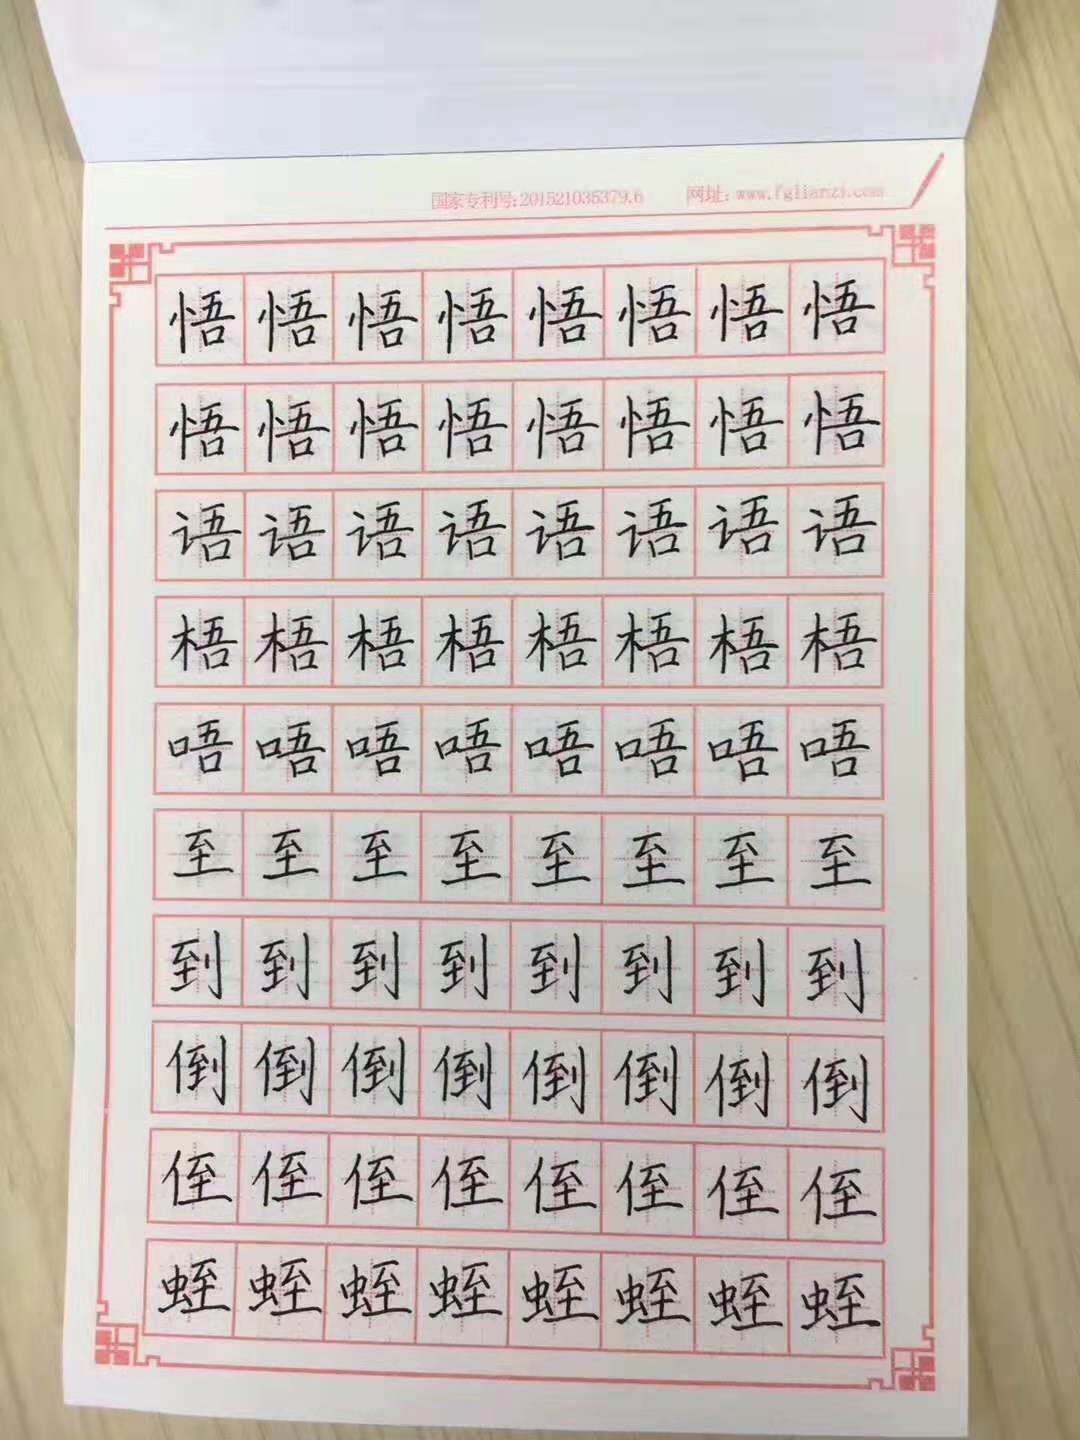 国家专利号:201521035379.6 网址: www.fglianzi.com
悟悟悟悟悟悟悟悟
悟悟悟悟悟悟悟悟
语语语语语语语语
梧梧梧梧梧梧梧梧
唔唔唔唔唔唔唔唔
至至至至至至至至
到到到到到到到到
倒倒倒倒倒倒倒倒
侄侄侄侄侄侄侄侄
蛭蛭蛭蛭蛭蛭蛭蛭